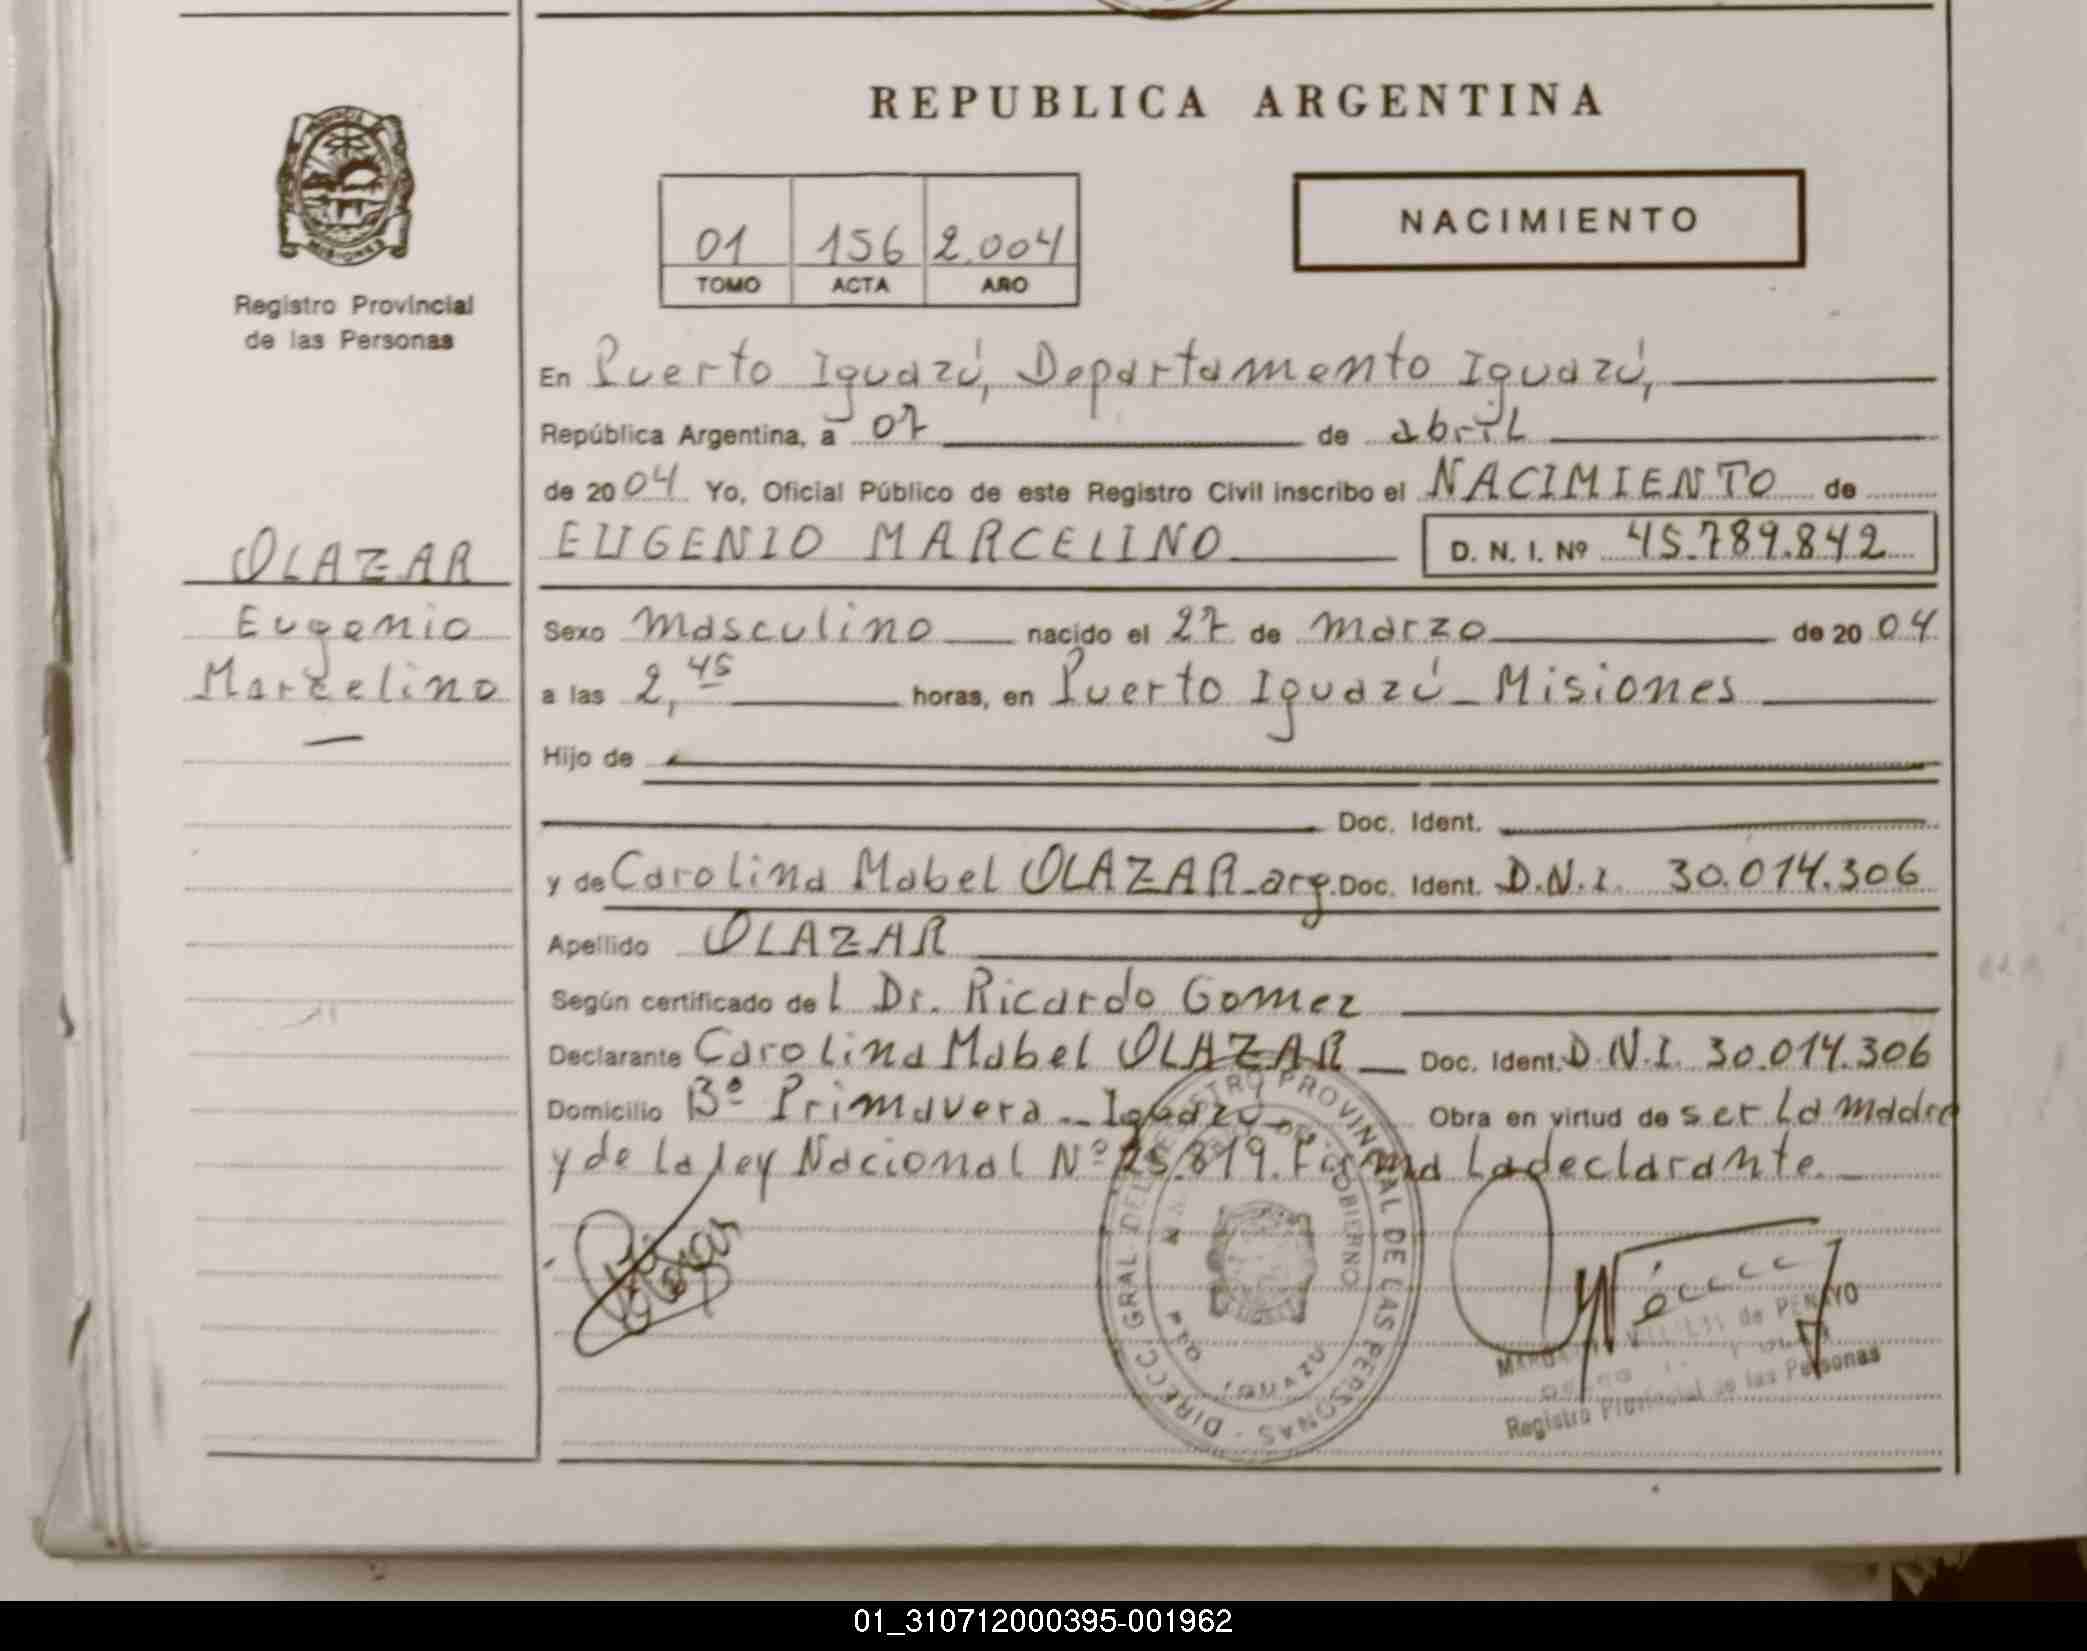 REPUBLICA ARGENTINA
Registro Provincial
de las Personas
01 156 2.004
TOMO ACTA AÑO
NACIMIENTO
En Puerto Iguazú, Departamento Iguazú,
República Argentina, a 07 de abril
de 2004 Yo, Oficial Público de este Registro Civil inscribo el NACIMIENTO de
EUGENIO MARCELINO D. N. I. Nº 45.789.842
OLAZAR
Eugenio
Marcelino
Sexo masculino nacido el 27 de marzo de 2004
a las 2,45 horas, en Puerto Iguazú - Misiones
Hijo de
Doc. Ident.
y de Carolina Mabel OLAZAR - arg. Doc. Ident. D.N.I. 30.014.306
Apellido OLAZAR
Según certificado del Dr. Ricardo Gomez
Declarante Carolina Mabel OLAZAR Doc. Ident. D.N.I. 30.014.306
Domicilio Bº Primavera - Iguazú - Obra en virtud de ser la madre
y de la ley Nacional Nº 25.819. Firma la declarante.
DIRECC. GRAL. DEL REGISTRO PROVINCIAL DE LAS PERSONAS
DE GOBIERNO
IGUAZU
de
Registro Provincial de las Personas
01_310712000395-001962